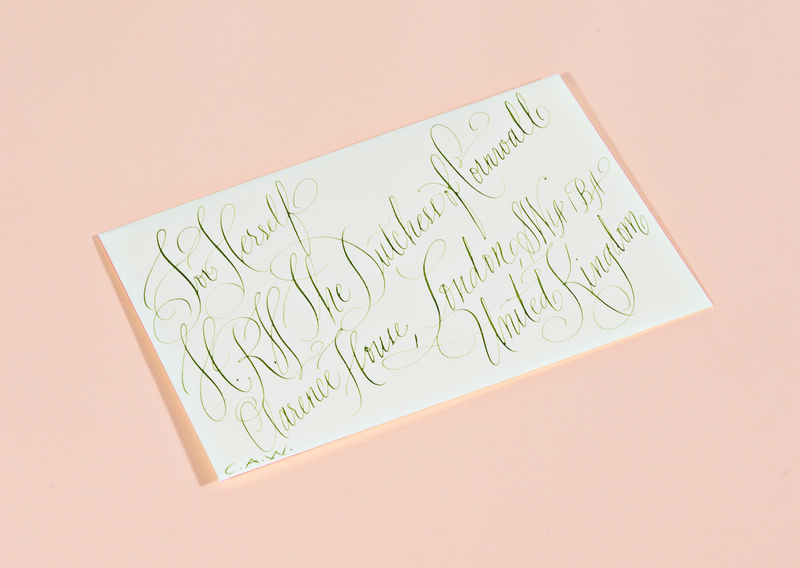 For Herself
H.R.H The Dutchess of Cornwall
Clarence House, London, SW1A 1BA
United Kingdom
C.A.W.